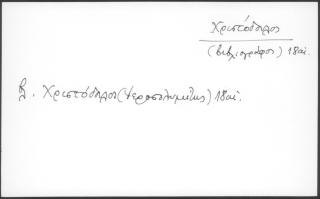 Χριστόδουλος
(βιβλιογράφος) 18 αἰ.
βλ. Χριστόδουλος (Ἱεροσολυμίτης) 18 αἰ.